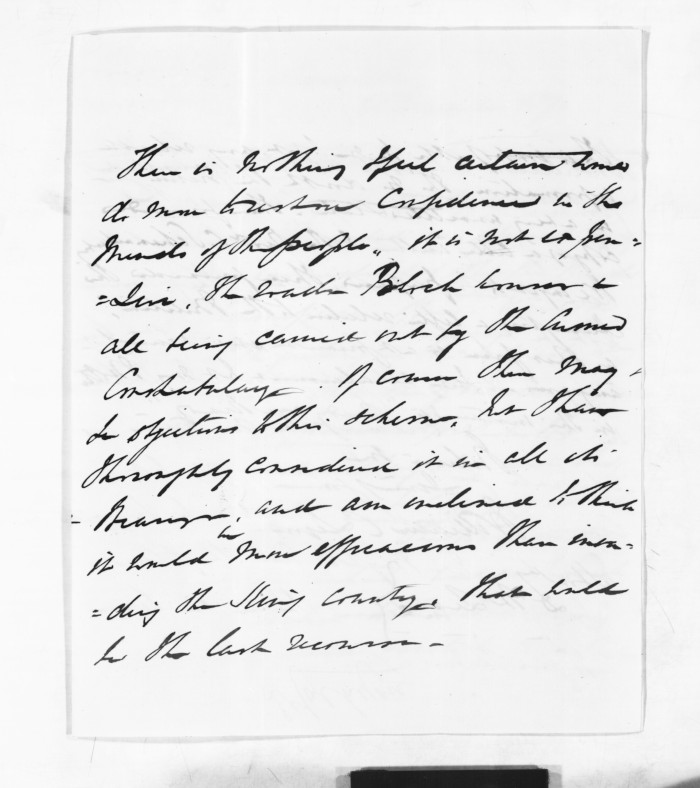 There is nothing I feel certain would
do more to restore Confidence in the
Minds of the people, it is not expen=
=sive, the roads Block houses &
all being carried out by the Armed
Constabulary. Of course there may
be objections to this scheme, but I have
thoroughly considered it in all its
bearings, and am inclined to think
it would be more efficacious than inva=
=ding the King country. That would
be the last recourse -